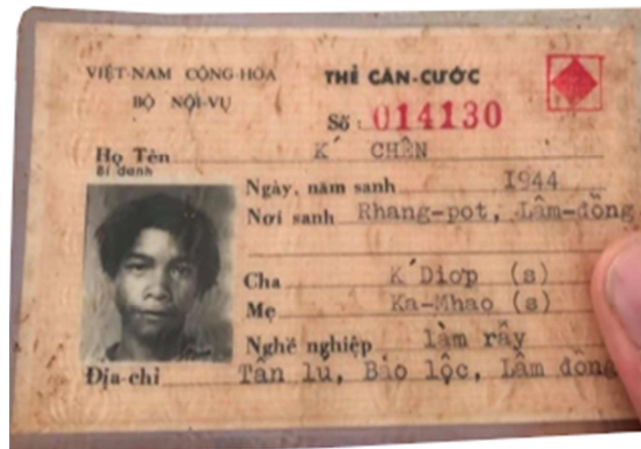 VIỆT-NAM CỘNG-HÒA
BỘ NỘI-VỤ
THẺ CĂN-CƯỚC
Số : 014130
Họ Tên K' CHÊN
Bí danh
Ngày, năm sanh 1944
Nơi sanh Rhang-pot, Lâm-đồng
Cha K'Diơp (s)
Mẹ Ka-Mhao (s)
Nghề nghiệp làm rẫy
Địa-chỉ Tân lú, Bảo lộc, Lâm đồng